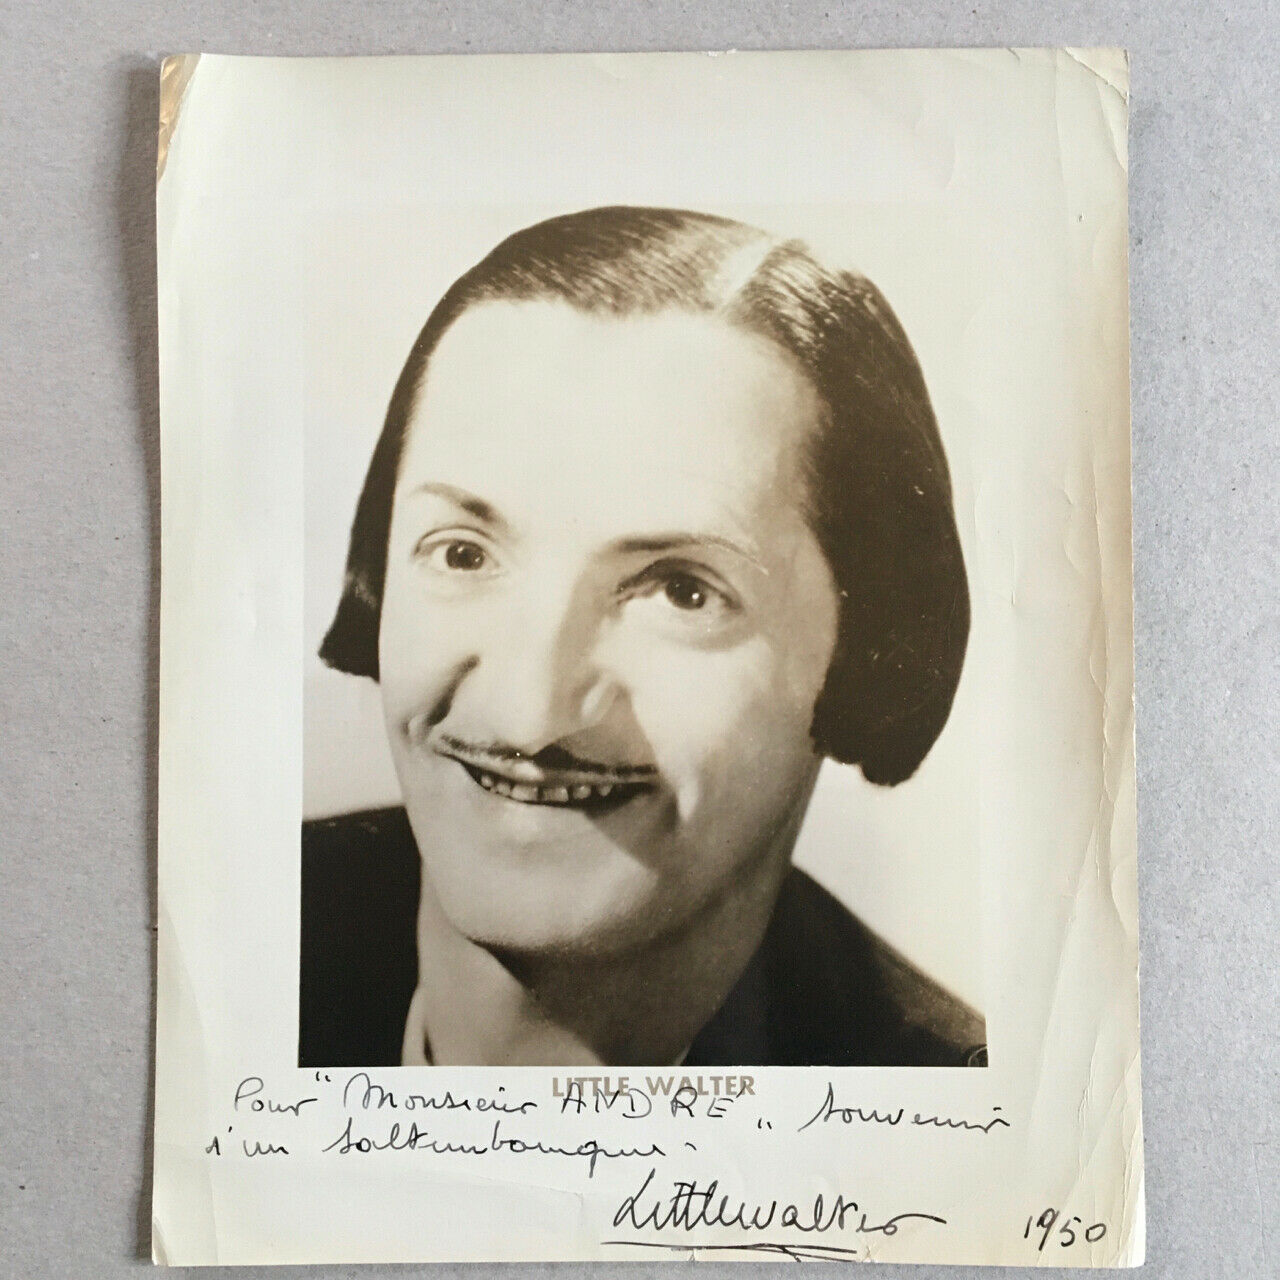 LITTLE WALTER
Pour "Monsieur ANDRÉ" souvenir
d'un saltimbanque.
Littlewalter 1950